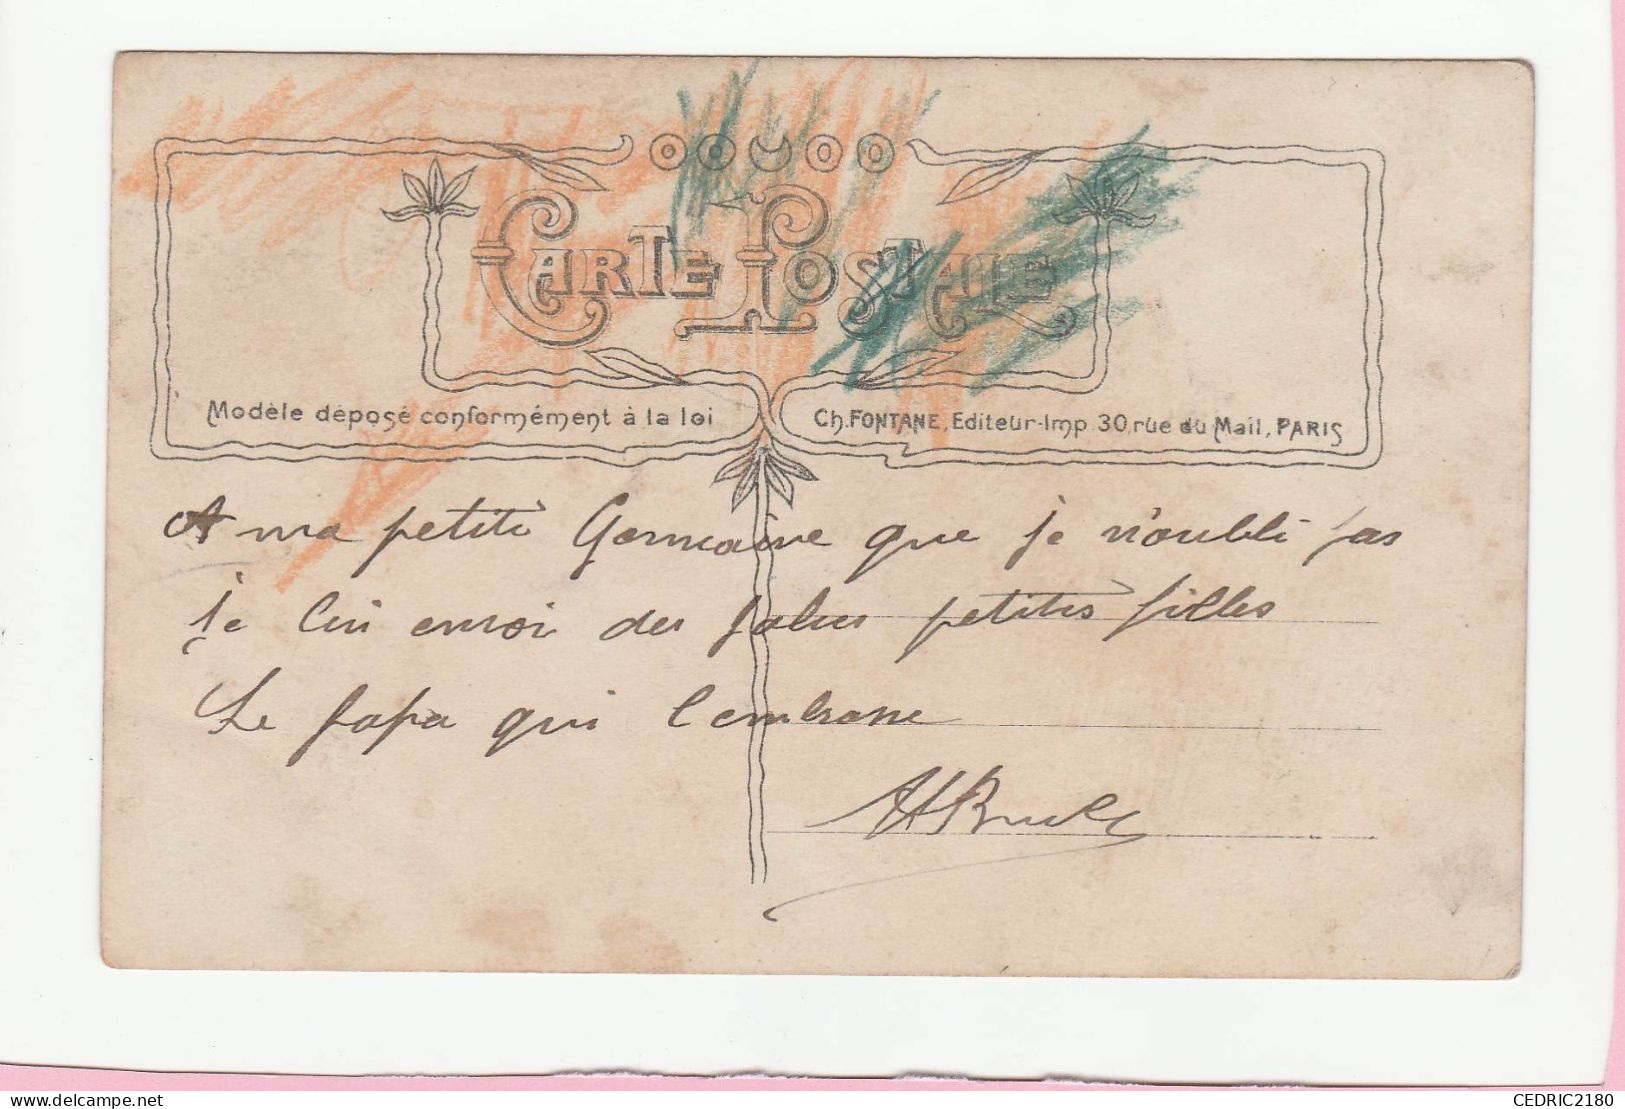 CARTE POSTALE
Modèle déposé conformément à la loi
Ch. FONTANE, Editeur-Imp 30, rue du Mail, PARIS
A ma petite Germaine que je n'oubli pas
je lui envoi des jolies petites filles
Le papa qui l'embrasse
CEDRIC2180